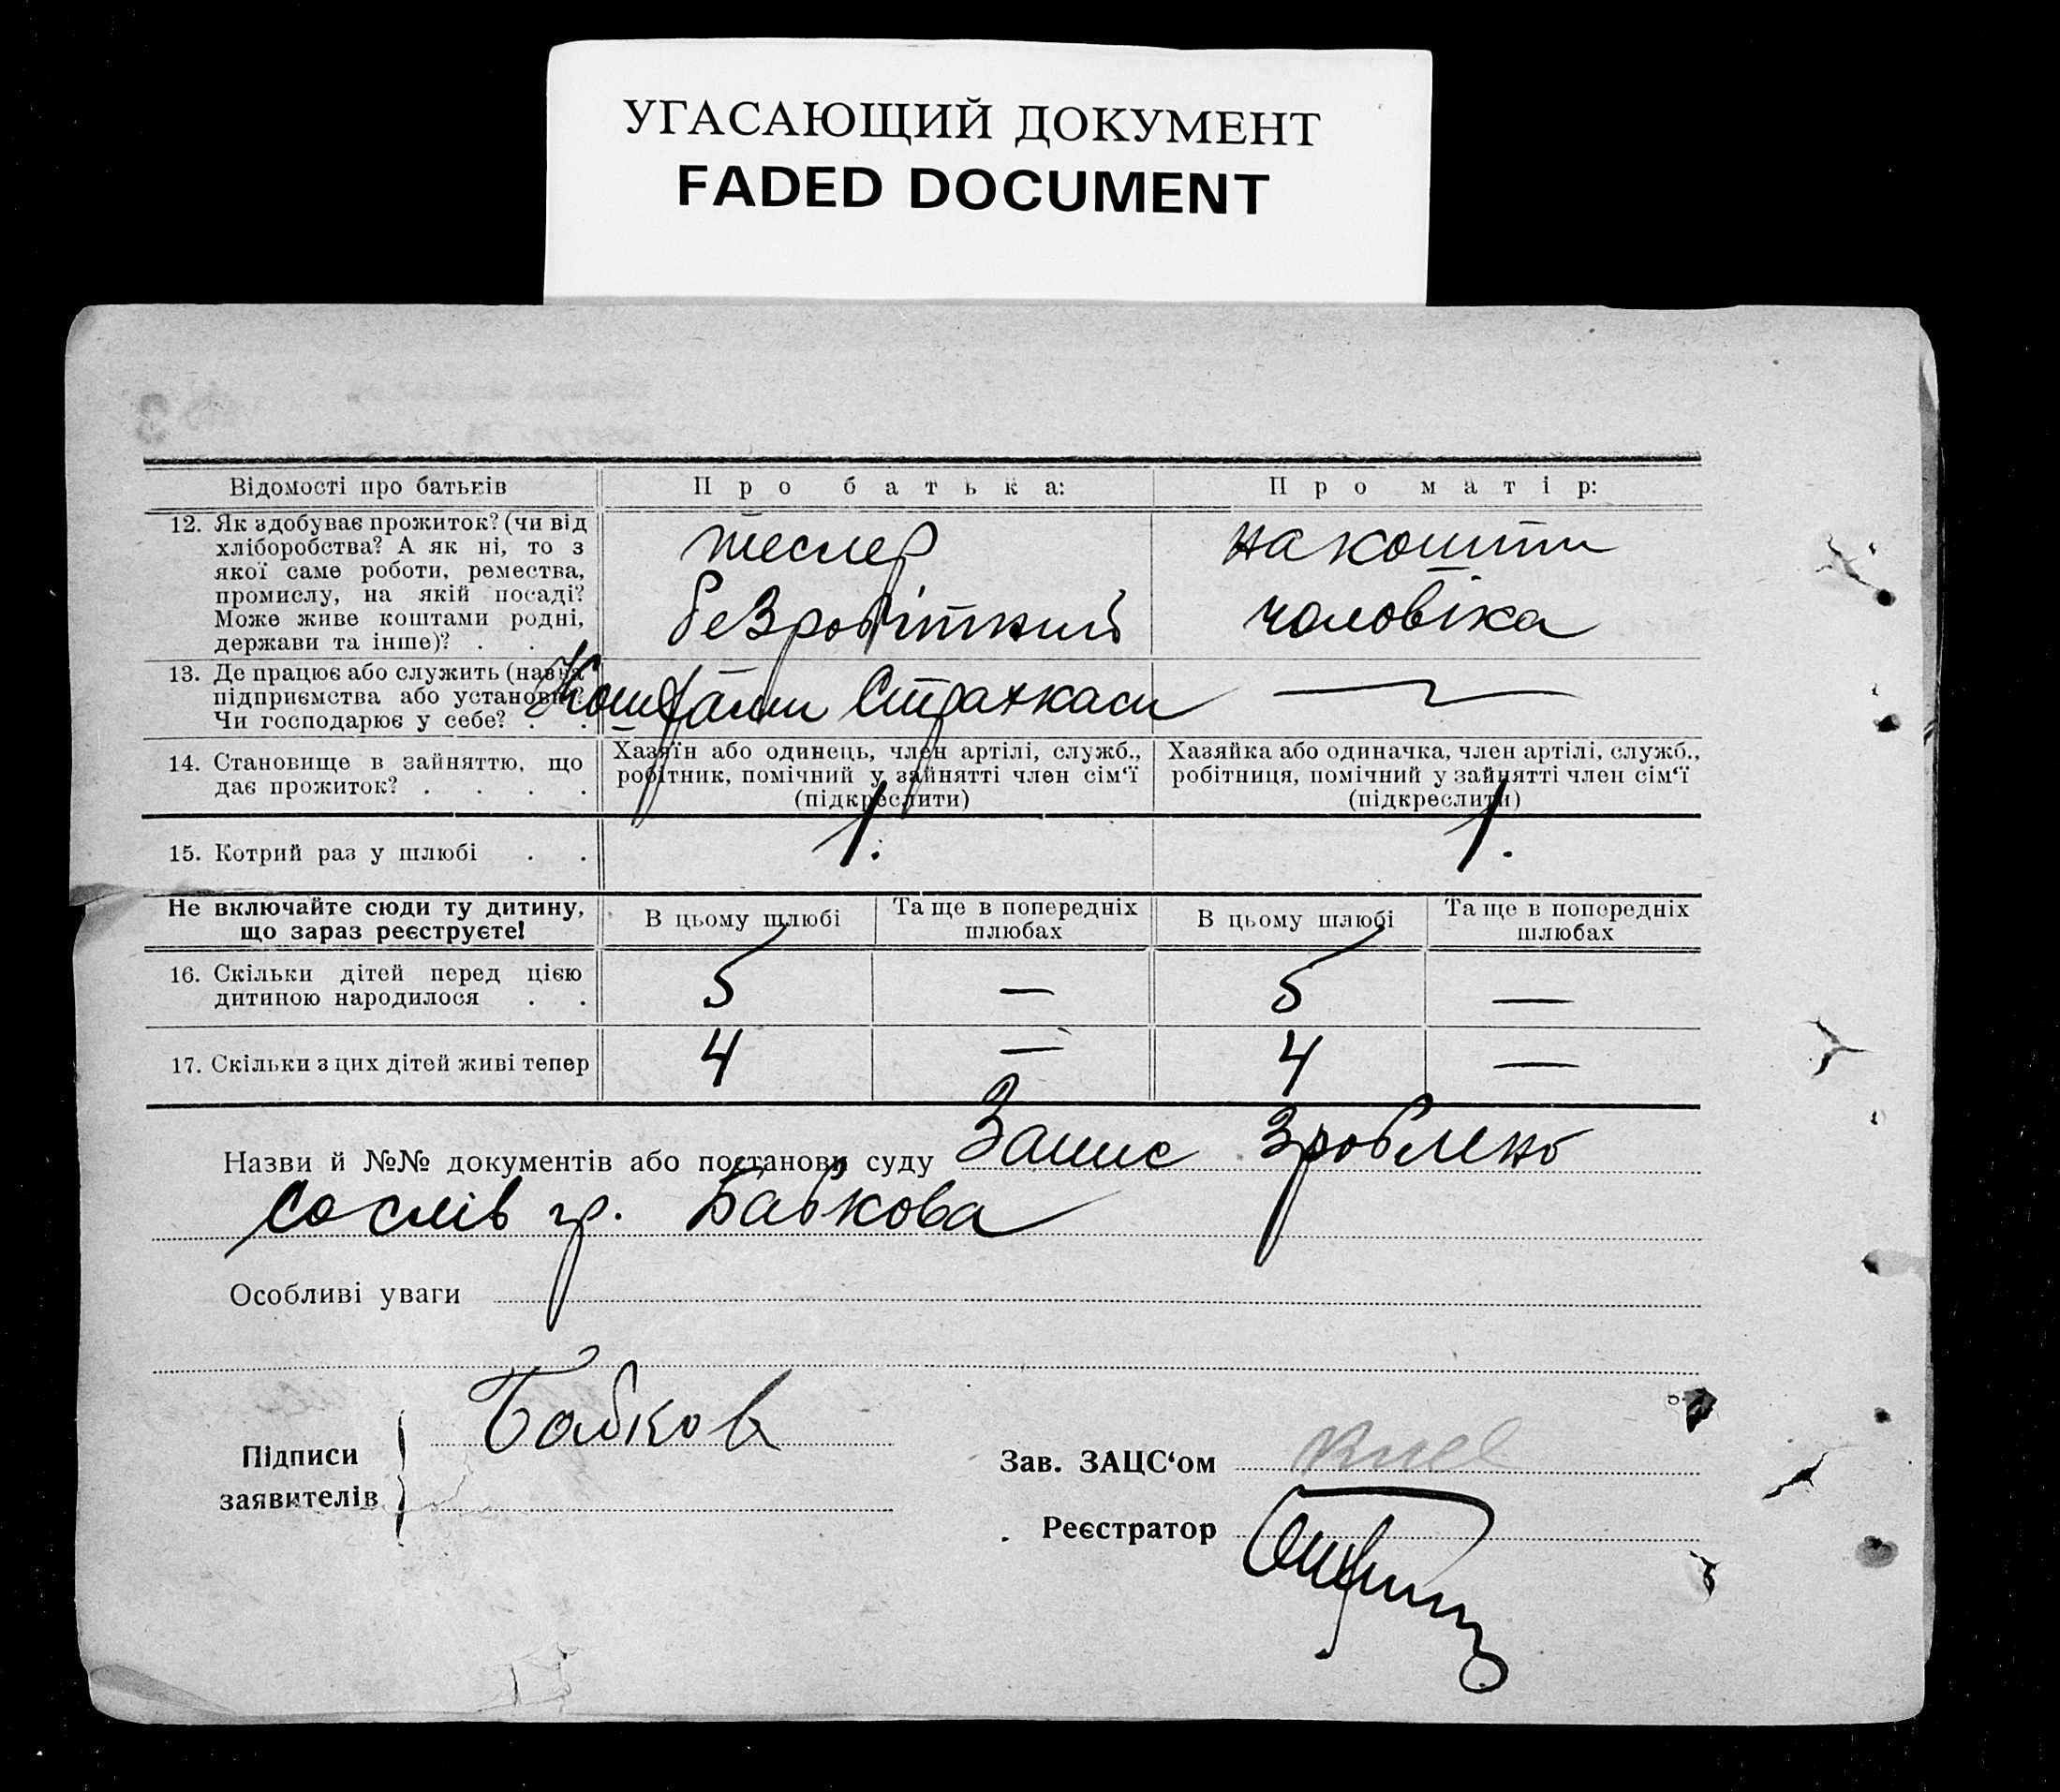 УГАСАЮЩИЙ ДОКУМЕНТ
FADED DOCUMENT
Відомості про батьків
Про батька:
Про матір:
12. Як здобуває прожиток? (чи від
хліборобства? А як ні, то з
якої саме роботи, ремества,
промислу, на якій посаді?
Може живе коштами родні,
держави та інше)? . .
тесляр
безробітний
на кошти
чоловіка
13. Де працює або служить (назва
підприємства або установи)?
Чи господарює у себе? . .
Коштами Страхкаси
—
14. Становище в зайняттю, що
дає прожиток? . . . .
Хазяїн або одинець, член артілі, служб.,
робітник, помічний у зайнятті член сім‘ї
(підкреслити)
Хазяйка або одиначка, член артілі, служб.,
робітниця, помічний у зайнятті член сім‘ї
(підкреслити)
15. Котрий раз у шлюбі . .
1.
1.
Не включайте сюди ту дитину,
що зараз реєструєте!
В цьому шлюбі
Та ще в попередніх
шлюбах
В цьому шлюбі
Та ще в попередніх
шлюбах
16. Скільки дітей перед цією
дитиною народилося . .
5
—
5
—
17. Скільки з цих дітей живі тепер
4
—
4
—
Назви й №№ документів або постанови суду Запис зроблено
со слів гр. Бабкова
Особливі уваги
Підписи
заявителів
Бабков
Зав. ЗАЦС‘ом
Реєстратор